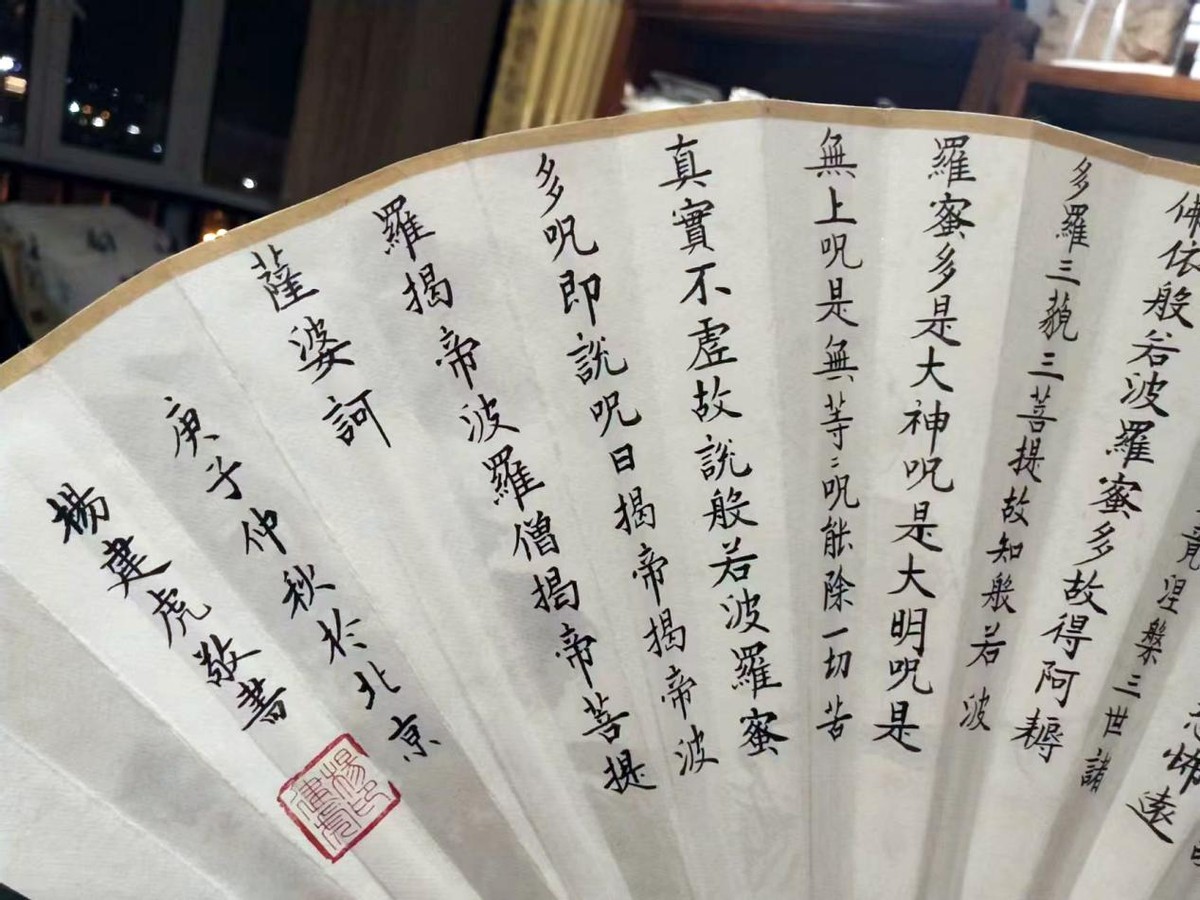 怖遠
竟涅槃三世諸
佛依般若波羅蜜多故得阿耨
多羅三藐三菩提故知般若波
羅蜜多是大神呪是大明呪是
無上呪是無等〻呪能除一切苦
真實不虛故說般若波羅蜜
多呪即說呪曰揭帝揭帝波
羅揭帝波羅僧揭帝菩提
薩婆訶
庚子仲秋於北京
楊建虎敬書
楊印建虎